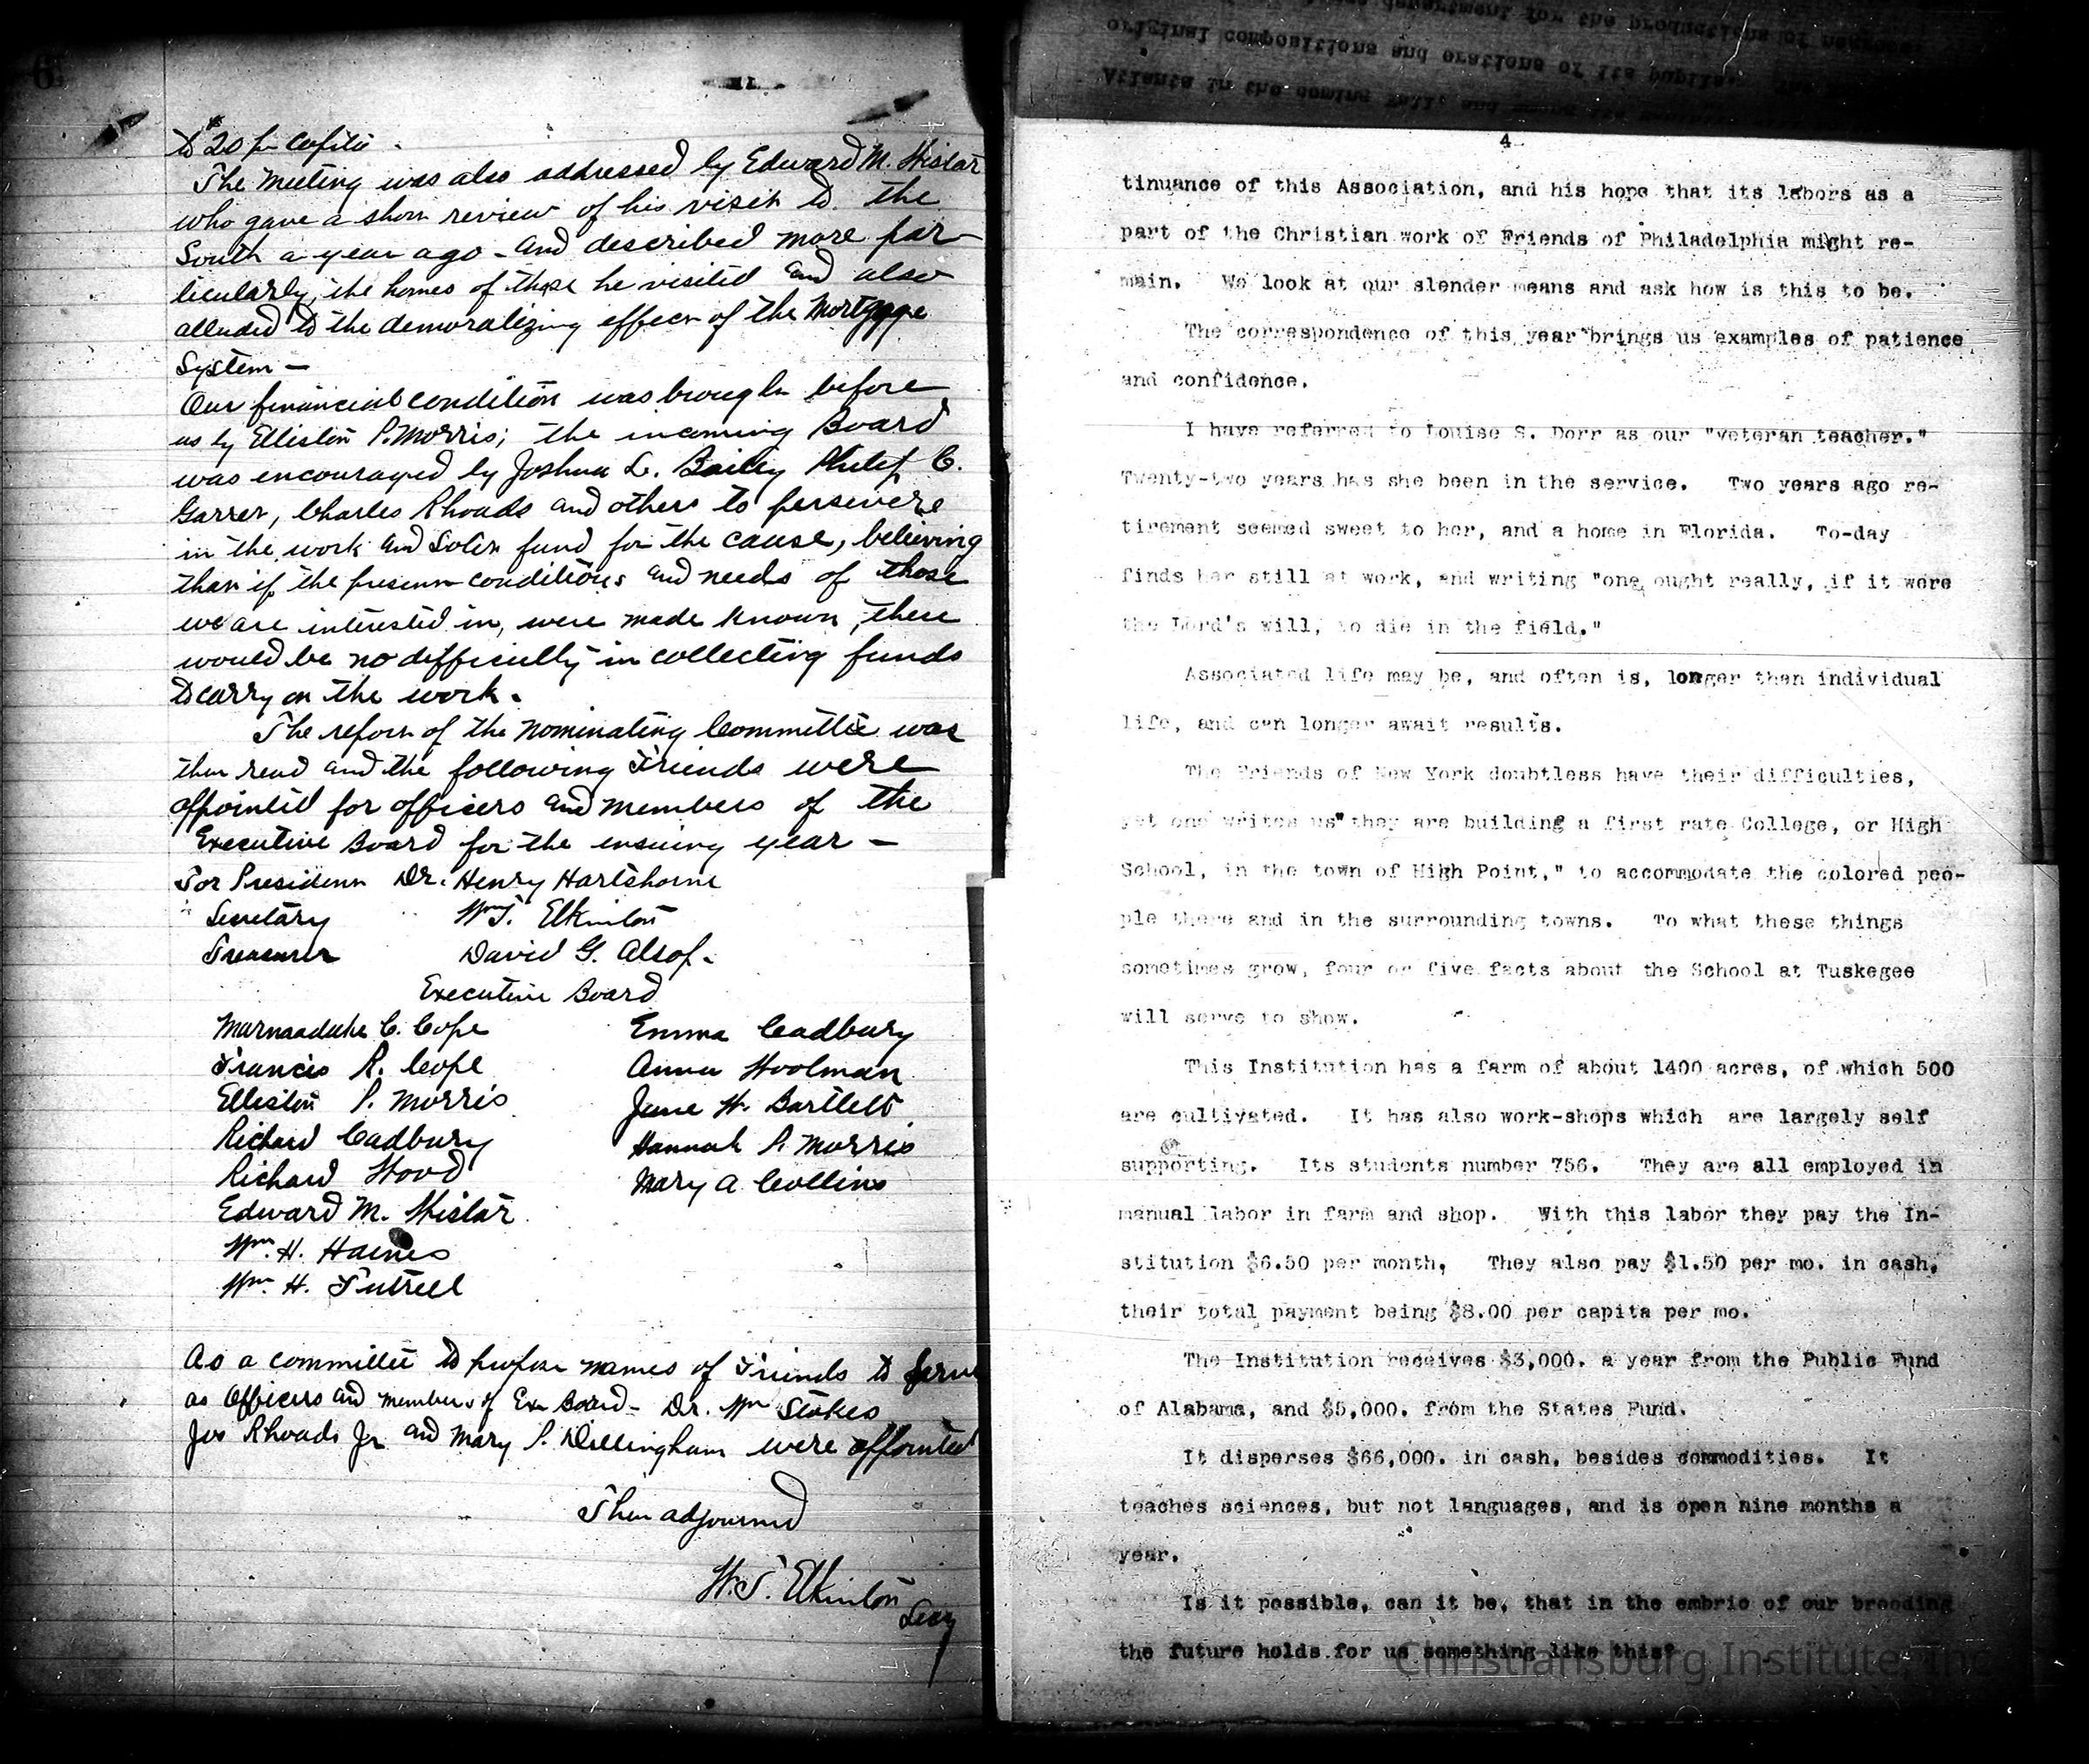 6
to $20 pr capita.
The meeting was also addressed by Edward M. Wistar
who gave a short review of his visit to the
South a year ago - and described more par-
ticularly, the homes of those he visited and also
alluded to the demoralizing effect of the Mortgage
System -
Our financial condition was brought before
us by Elliston P. Morris; the incoming Board
was encouraged by Joshua L. Baily Philip C.
Garrett, Charles Rhoads and others to persevere
in the work and solicit fund for the cause, believing
that if the present conditions and needs of those
we are interested in, were made known, there
would be no difficulty in collecting funds
to carry on the work.
The report of the nominating Committee was
then read and the following Friends were
appointed for officers and members of the
Executive Board for the ensuing year -
For President Dr. Henry Hartshorne
" Secretary " Wm T. Elkinton
Treasurer David G. Alsop.
Executive Board
Marmaduke C. Cope Emma Cadbury
Francis R. Cope Anna Woolman
Elliston P. Morris Jane W. Bartlett
Richard Cadbury Hannah P. Morris
Richard Wood Mary A. Collins
Edward M. Wistar
Wm. H. Haines
Wm. H. Futrell
As a committee to propose names of Friends to serve
as Officers and members of Ex Board - Dr. Wm Stokes
Jos Rhoads Jr and Mary P. Dillingham were appointed
Then adjourned
W. T. Elkinton
Secy
department for the productions of
original compositions and orations of its pupils.
Atlanta in the coming Fall, and
4
tinuance of this Association, and his hope that its labors as a
part of the Christian work of Friends of Philadelphia might re-
main. We look at our slender means and ask how is this to be.
The correspondence of this year brings us examples of patience
and confidence.
I have referred to Louise S. Dorr as our "veteran teacher."
Twenty-two years has she been in the service. Two years ago re-
tirement seemed sweet to her, and a home in Florida. To-day
finds her still at work, and writing "one ought really, if it were
the Lord's will, to die in the field."
Associated life may be, and often is, longer than individual
life, and can longer await results.
The Friends of New York doubtless have their difficulties,
yet one writes us "they are building a first rate College, or High
School, in the town of High Point," to accommodate the colored peo-
ple there and in the surrounding towns. To what these things
sometimes grow, four or five facts about the School at Tuskegee
will serve to show.
This Institution has a farm of about 1400 acres, of which 500
are cultivated. It has also work-shops which are largely self
supporting. Its students number 756. They are all employed in
manual labor in farm and shop. With this labor they pay the In-
stitution $6.50 per month, They also pay $1.50 per mo. in cash,
their total payment being $8.00 per capita per mo.
The Institution receives $3,000. a year from the Public Fund
of Alabama, and $5,000. from the States Fund.
It disperses $66,000. in cash, besides commodities. It
teaches sciences, but not languages, and is open nine months a
year.
Is it possible, can it be, that in the embrio of our brooding
the future holds for us something like this?
Christiansburg Institute, Inc